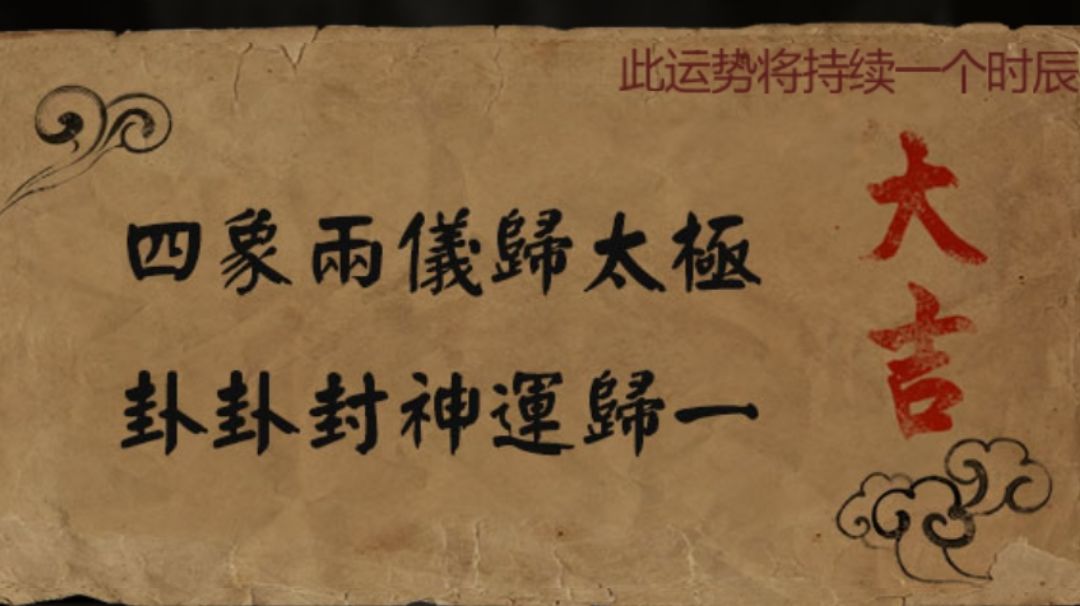 此运势将持续一个时辰
大吉
四象兩儀歸太極
卦卦封神運歸一